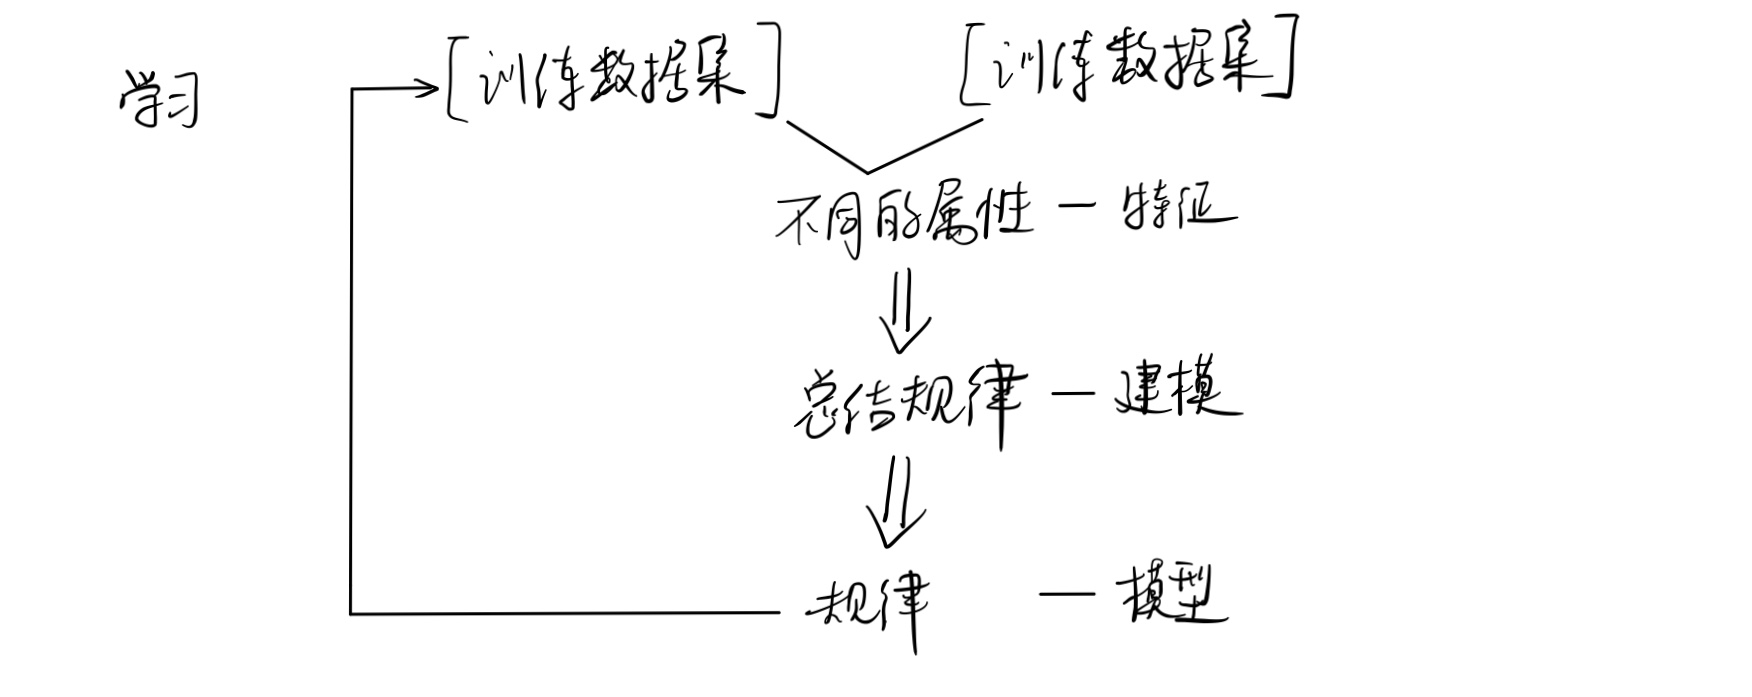 学习 [训练数据集] [训练数据集]
不同的属性 — 特征
总结规律 — 建模
规律 — 模型